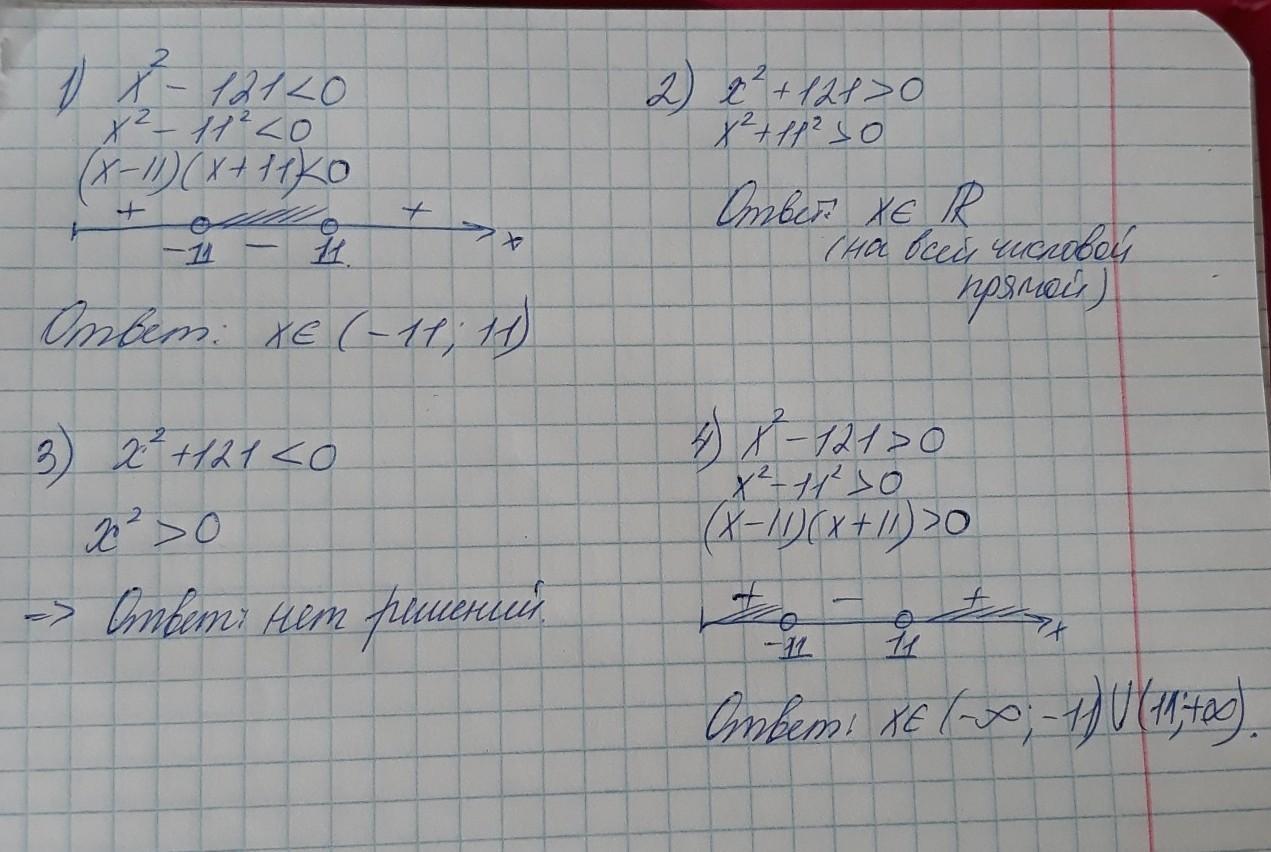 1) x² - 121 < 0
x² - 11² < 0
(x-11)(x+11)<0
+ +
-11 - 11 x
Ответ: x∈ (-11; 11)
2) x² + 121 > 0
x² + 11² > 0
Ответ: x∈ ℝ
(на всей числовой
прямой)
3) x² + 121 < 0
x² > 0
=> Ответ: нет решений.
4) x² - 121 > 0
x² - 11² > 0
(x-11)(x+11)>0
+ - +
-11 11 x
Ответ: x∈ (-∞; -11)∪(11;+∞).